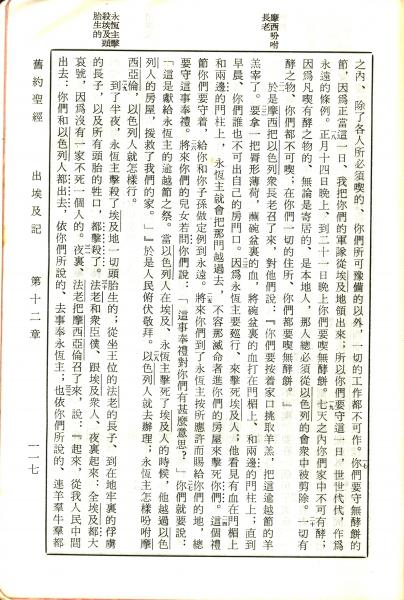 之內、除了各人所必須喫的、你們所可豫備的以外、一切的工作都不可作。你們要守無酵餅的
節，因爲正當這一日、我把你們的軍隊從埃及地領出來；所以你們要守這一日，世世代代，作爲
永遠的條例。正月十四日晚上、到二十一日晚上你們要喫無酵餅。七天之內你們家中不可有酵；
因爲凡喫有酵之物的、無論是寄居的、是本地人，那人總必須從以色列的會衆中被剪除。一切有
酵之物，你們都不可喫：在你們一切的住所、你們都要喫無酵餅。』
摩西吩咐
長老
於是摩西把以色列衆長老召了來，對他們說：『你們要按着家口挑取羊羔，把這逾越節的羊
羔宰了。要拿一把脣形薄荷，蘸碗盆裏的血，將碗盆裏的血打在門楣上、和兩邊的門柱上；直到
早晨、你們誰也不可出自己的房門口。因爲永恆主要巡行、來擊死埃及人；他看見有血在門楣上
和兩邊的門柱上，永恆主就會把那門越過去，不容那滅命者進你們的房屋來擊死你們。這個禮
節你們要守着，給你和你子孫做定例到永遠。將來你們到了永恆主按所應許而賜給你們的地，總
要守這事奉禮。將來你們的兒女若問你們說：「這事奉禮對你們有甚麼意思？」你們就要說：
「這是獻給永恆主的逾越節之祭。當以色列人在埃及、永恆主擊死了埃及人的時候，他越過以色
列人的房屋，援救了我們的家。」』於是人民俯伏敬拜。以色列人就去辦理；永恆主怎樣吩咐摩
西亞倫，以色列人就怎樣行。
永恆主擊
殺埃及頭
胎生的
到了半夜，永恆主擊殺了埃及地一切頭胎生的；從坐王位的法老的長子、到在地牢裏的俘虜
的長子，以及所有頭胎的牲口，都擊殺了。法老和衆臣僕、跟埃及衆人、夜裏起來，全埃及都大
哀號，因爲沒有一家不死一個人的。夜裏、法老把摩西亞倫召了來，說：『起來，從我人民中間
出去；你們和以色列人都出去，依你們所說的、去事奉永恆主；也依你們所說的、連羊羣牛羣都
舊約聖經　出埃及記　第十二章　一一七